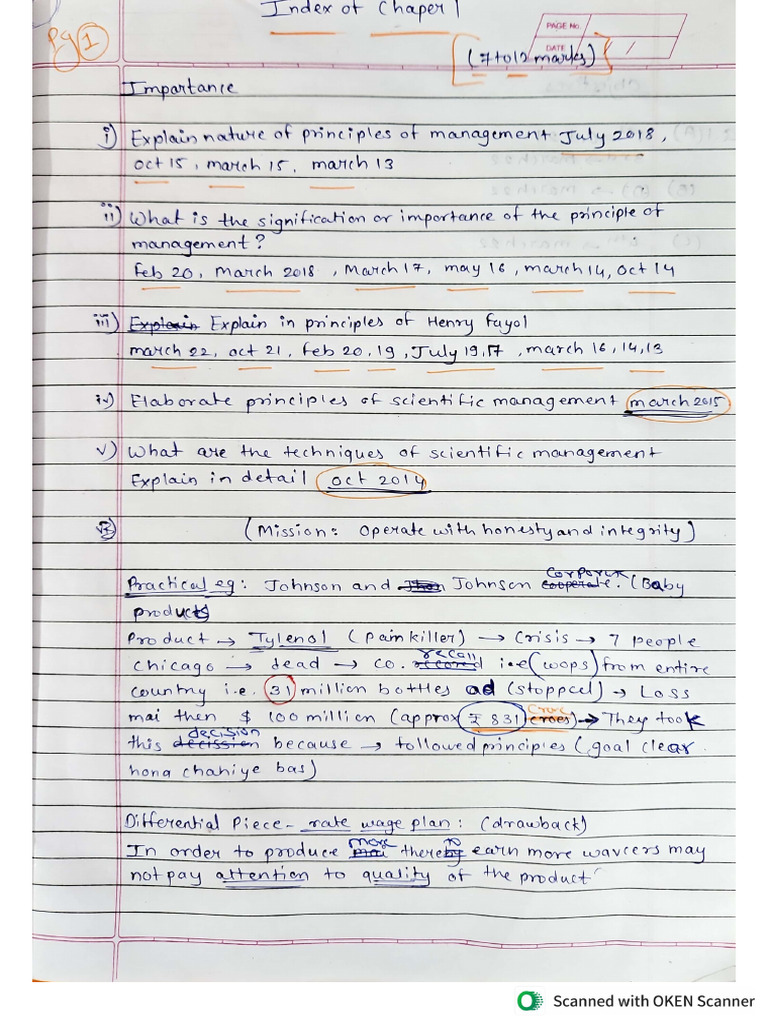 Index of Chaper 1
Pg 1
PAGE No.
DATE / /
(7 to 12 marks)
Importance
i) Explain nature of principles of management July 2018,
oct 15, march 15, march 13
ii) What is the signification or importance of the principle of
management?
Feb 20, March 2018, March 17, may 16, march 14, Oct 14
iii) Explain Explain in principles of Henry Fayol
march 22, oct 21, Feb 20, 19, July 19, 17, march 16, 14, 13
iv) Elaborate principles of scientific management march 2015
v) What are the techniques of scientific management
Explain in detail oct 2014
(Mission: Operate with honesty and integrity)
Practical eg: Johnson and Johnson corporate. (Baby
products
Product → Tylenol (painkiller) → Crisis → 7 people
chicago → dead → co. recall i.e (woops) from entire
country i.e. 31 million bottles ad (stopped) → Loss
mai then $ 100 million (approx ₹ 831 crore) → They took
this decision because → followed principles (goal clear
hona chahiye bas)
Differential Piece - rate wage plan: (drawback)
In order to produce more there to earn more wavcers may
not pay attention to quality of the product
Scanned with OKEN Scanner